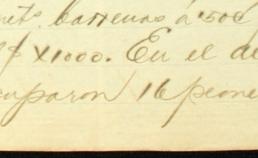 mets. barrenas á 50¢
$ X1000. En el de
cuparon 16 peone